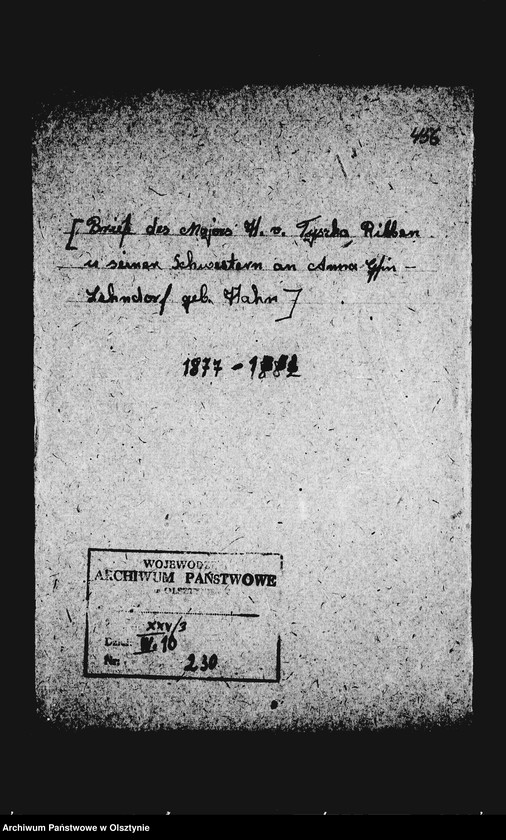 456
[Briefe des Majors H. v. Tyszka, Ribben
u seiner Schwestern an Anna Gfin -
Lehndorf geb. Hahn]
1877 - 1882
WOJEWÓDZKIE
ARCHIWUM PAŃSTWOWE
w OLSZTYNIE
XXV/3
Dział: 10
Nr: 230
Archiwum Państwowe w Olsztynie